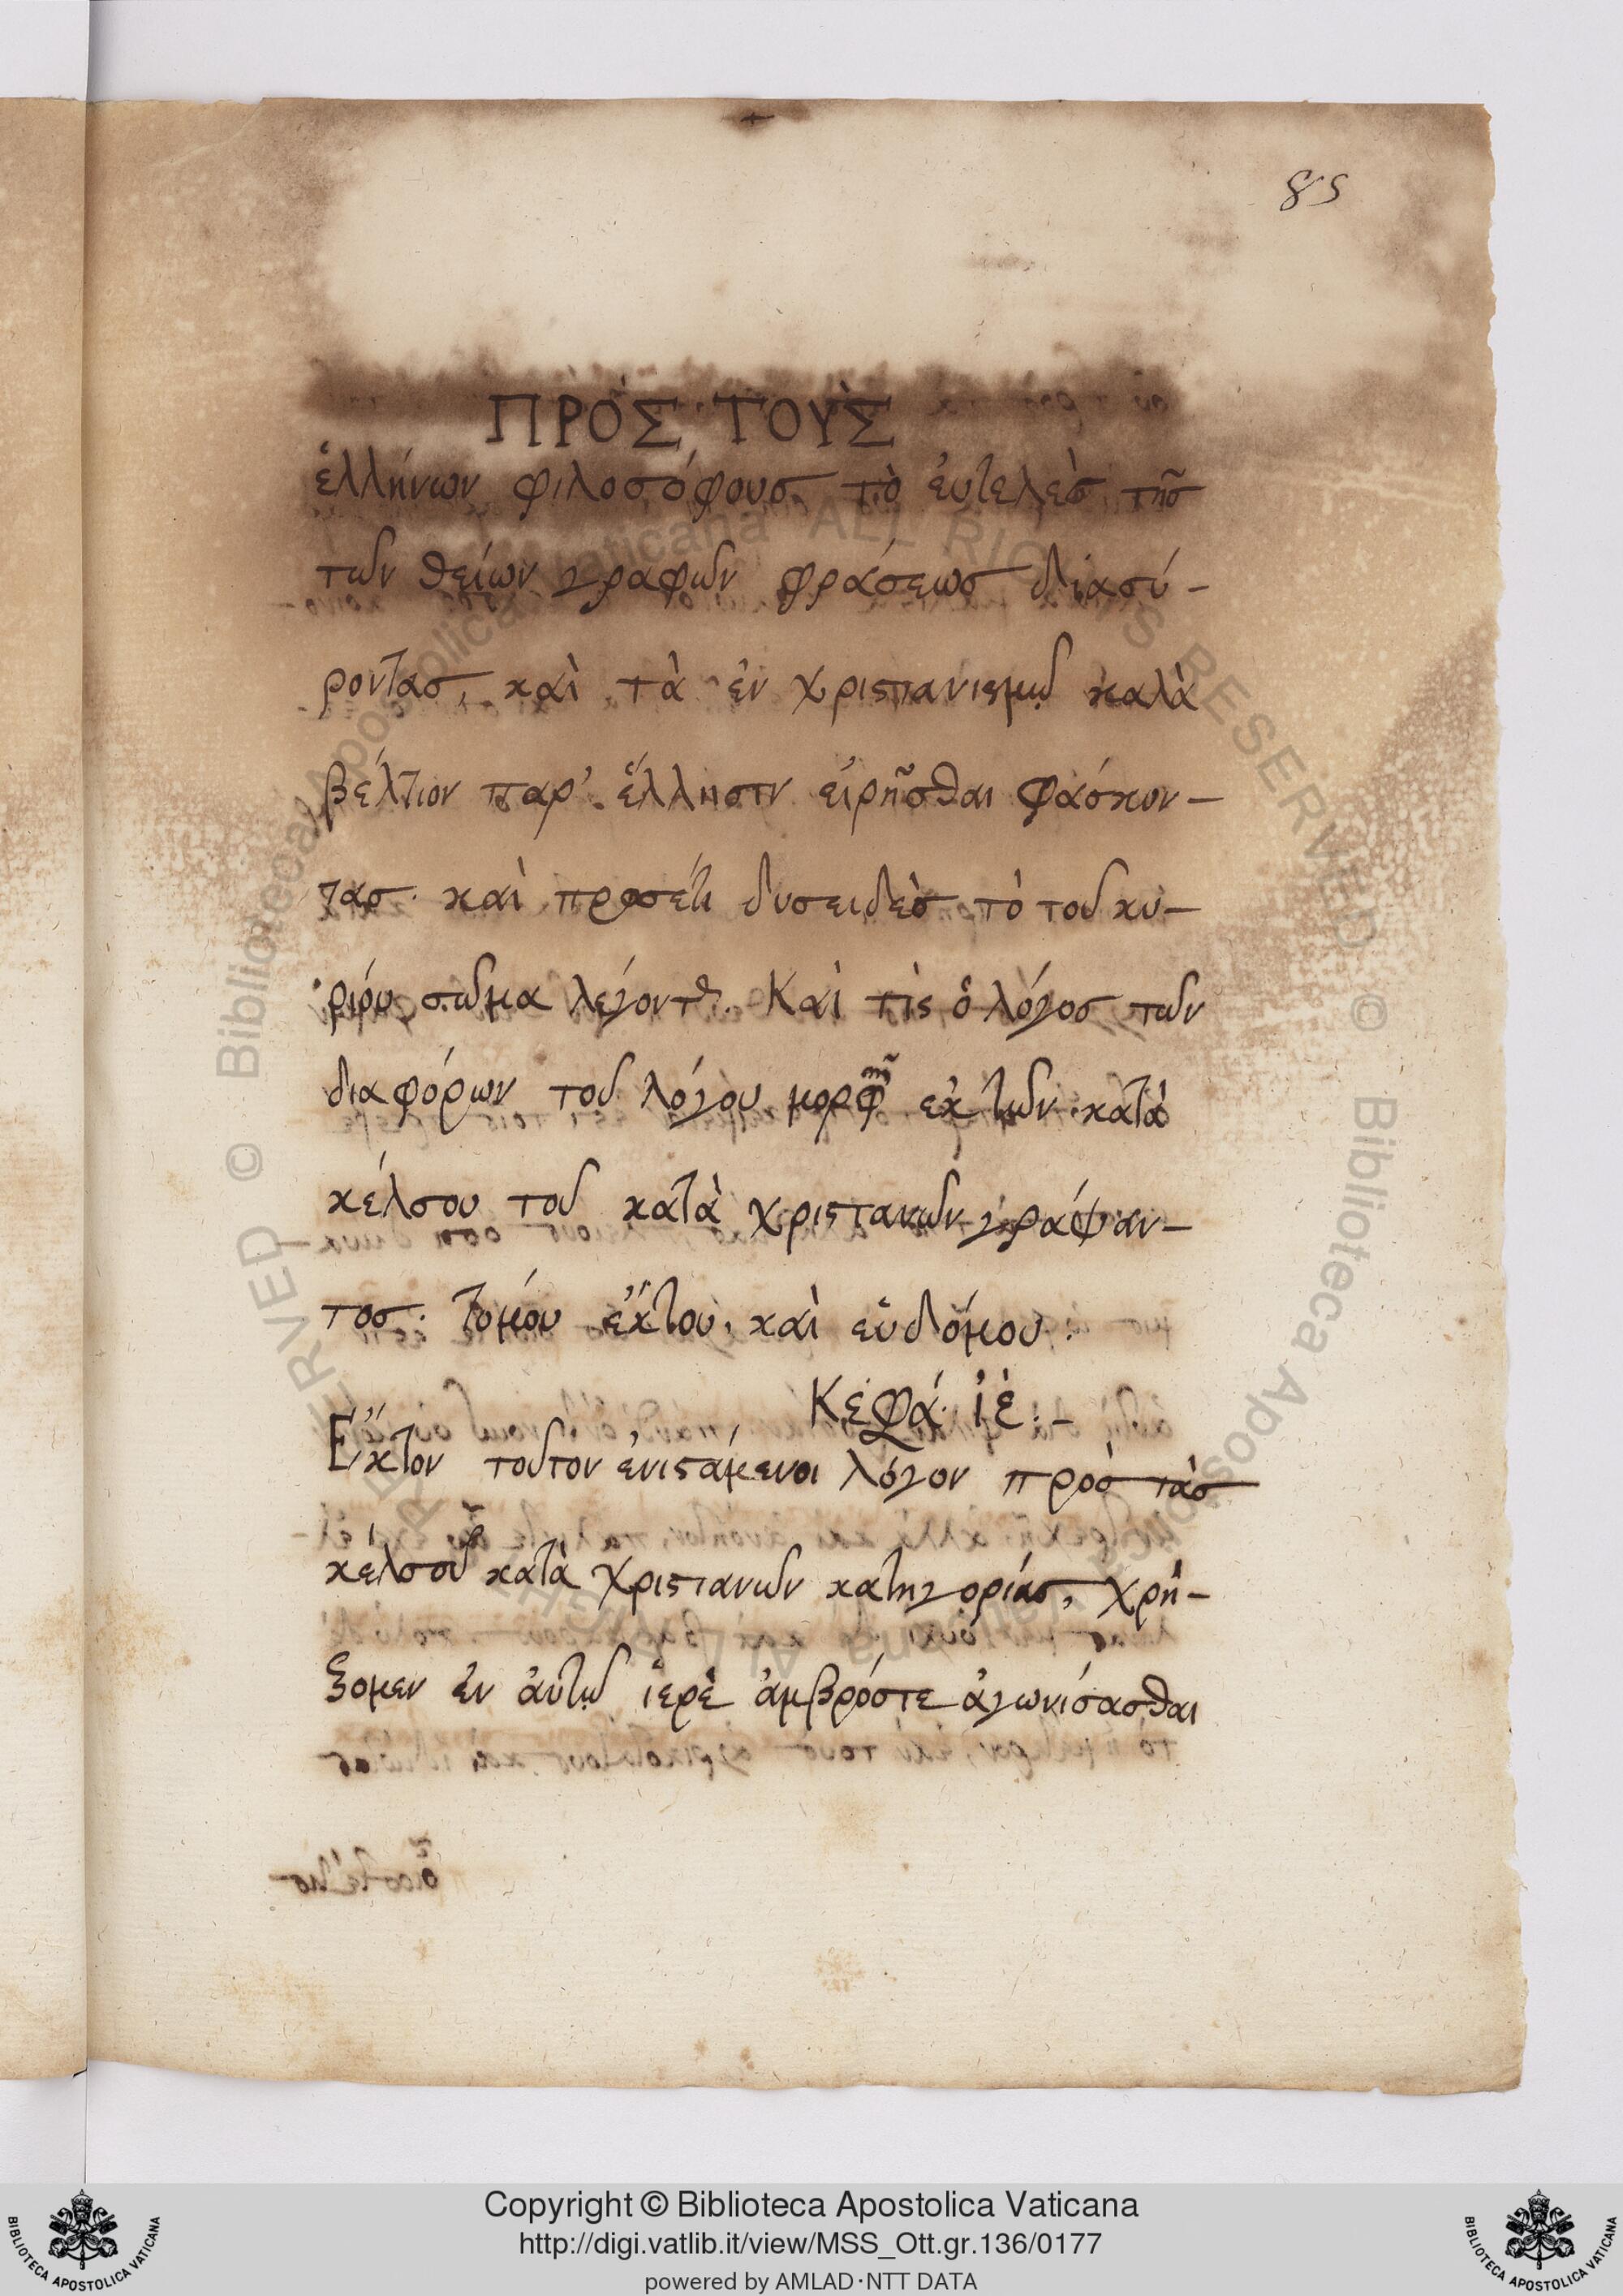 85
ΠΡῸΣ ΤΟῪΣ
ἑλλήνων φιλοσόφους, τὸ ἐυτελὲς τῆς
των θείων γραφων φράσεως διασύ-
ροντας, καὶ τὰ ἐν χριστιανισμῳ καλὰ
βέλτιον παρ' ἕλλησιν εἰρῆσθαι φάσκον-
τας. καὶ προσέτι δυσειδὲς τὸ του κυ-
ρίου σωμα λέγοντ. Καὶ τὶς ὁ λόγος των
διαφόρων του λόγου μορφῆ ἐκ των κατὰ
κέλσου του κατὰ χριστιανων γράψαν-
τος. τομόυ ἕκτου. καὶ εὑδόμου.
Κεφά. ιε.-
Ε῞κτον τουτον ἐνιστάμενοι λόγον πρὸς τὰς
κέλσου κατὰ χριστιανων κατηγορίας, χρή-
ζομεν ἐν ἀυτῳ ἱερὲ ἀμβρόσιε ἀγωνίσασθαι
© Biblioteca Apostolica Vaticana ALL RIGHTS RESERVED
Copyright © Biblioteca Apostolica Vaticana
http://digi.vatlib.it/view/MSS_Ott.gr.136/0177
powered by AMLAD·NTT DATA
BIBLIOTECA APOSTOLICA VATICANA
BIBLIOTECA APOSTOLICA VATICANA